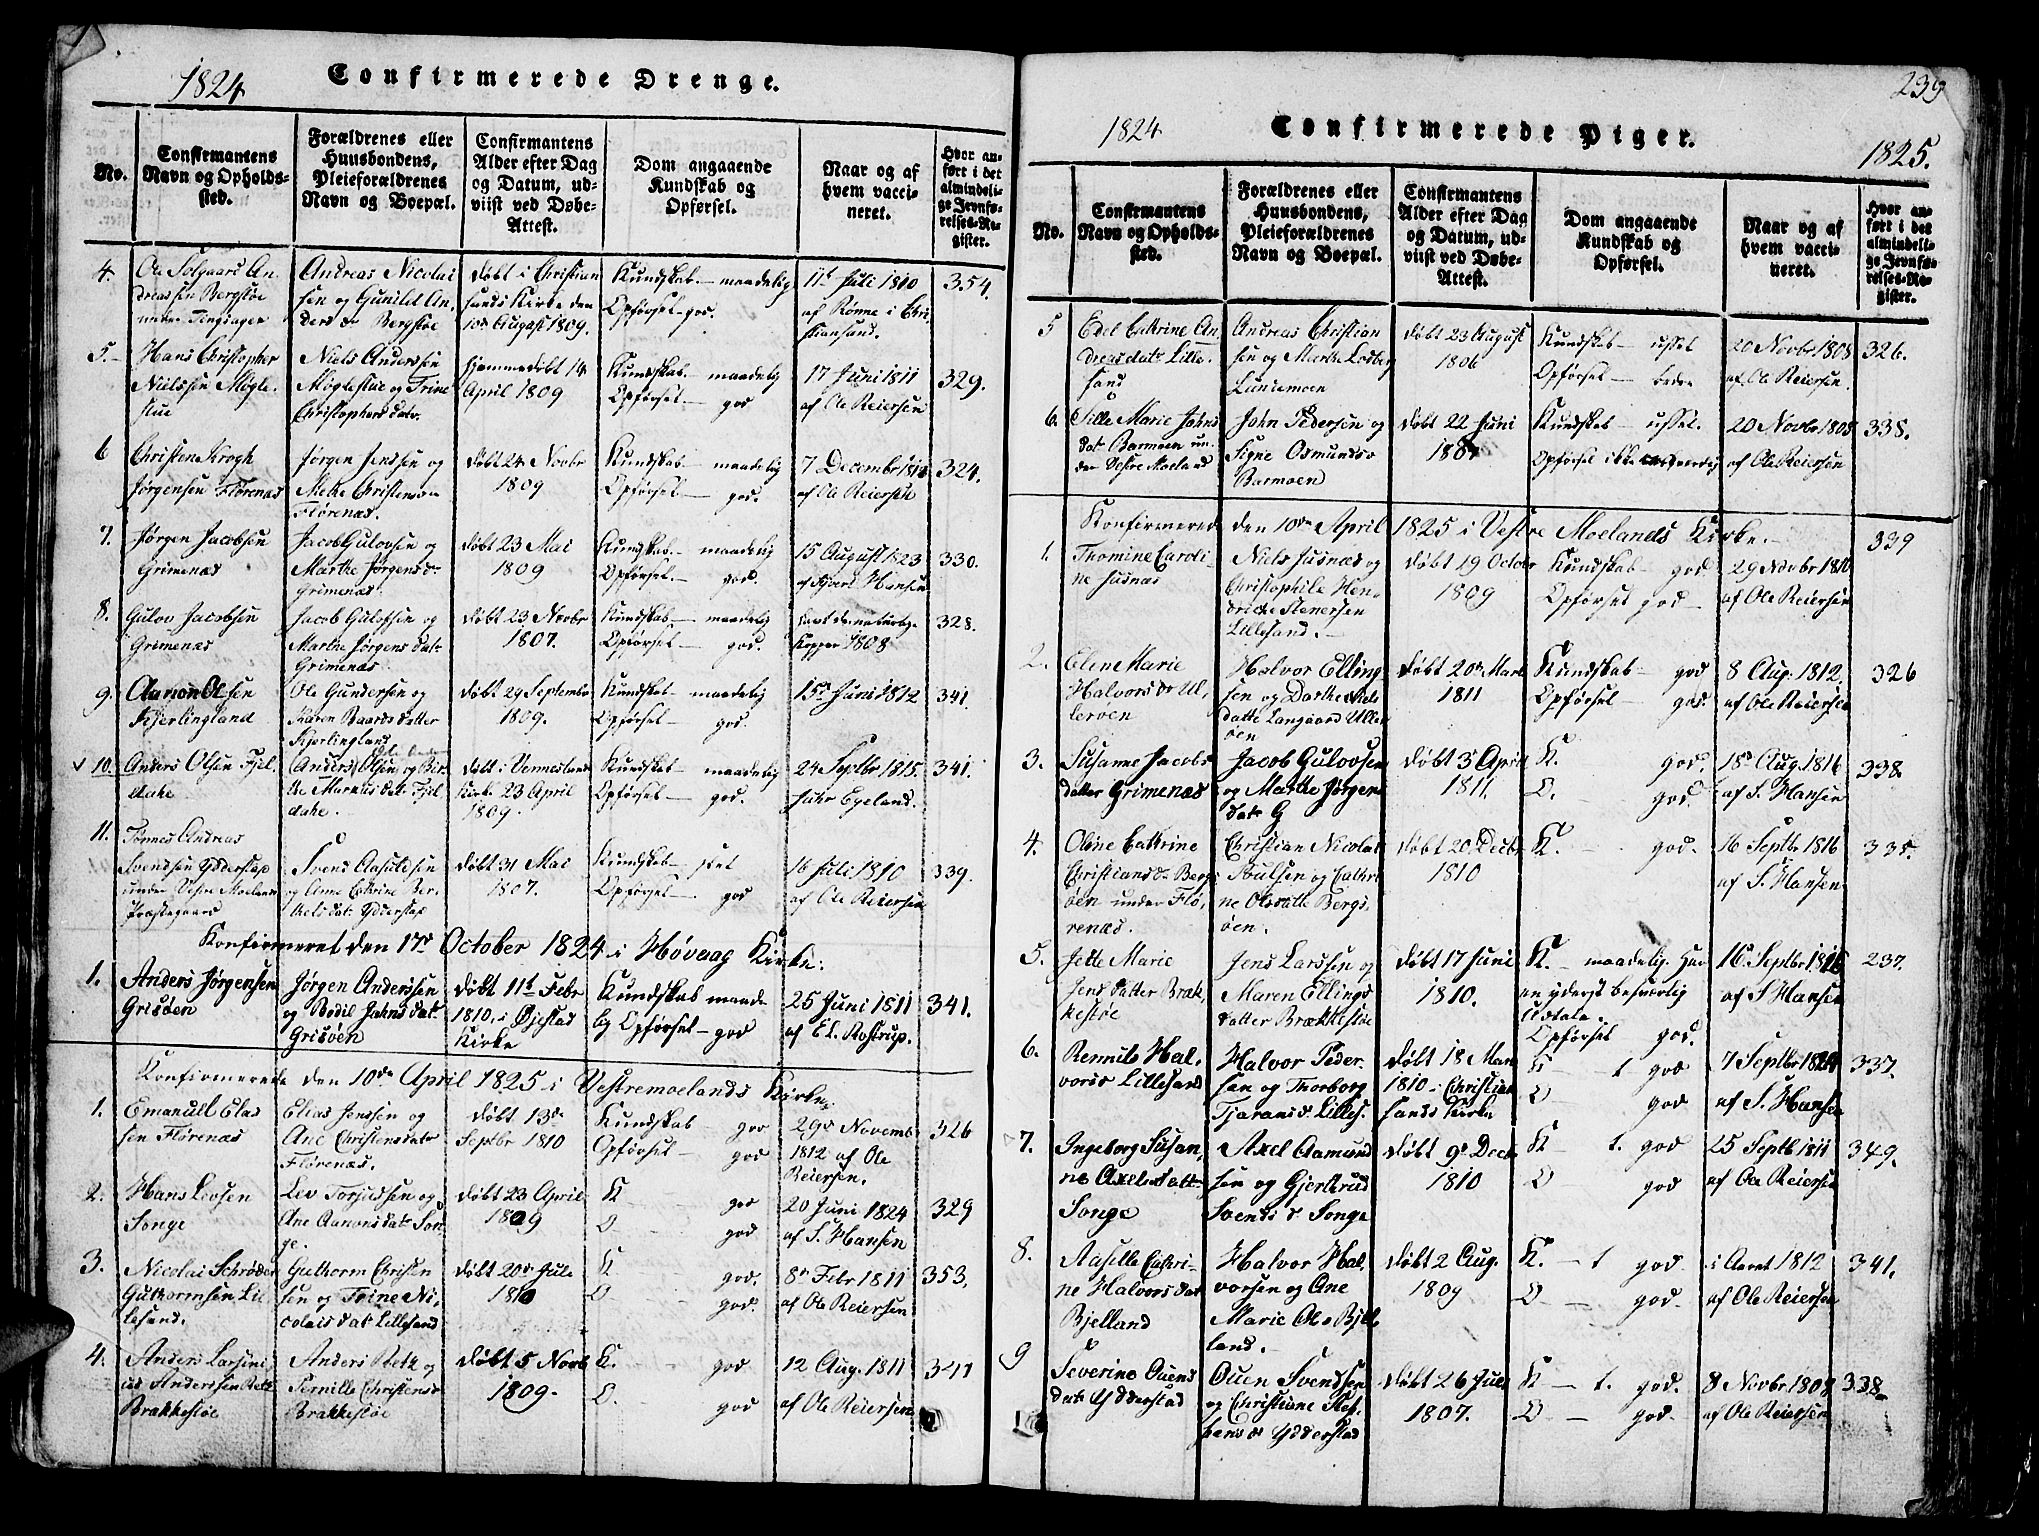 1824 Confirmerede Drenge.
No.
Confirmantens
Navn og Opholds-
sted.
Forældrenes eller
Huusbondens,
Pleieforældrenes
Navn og Boepæl.
Confirmantens
Alder efter Dag
og Datum, ud-
viist ved Døbe-
Attest.
Dom angaaende
Kundskab og
Opførsel.
Naar og af
hvem vacci-
neret.
Hvor an-
ført i det
almindeli-
ge Jevnfø-
relses-Re-
gister.
4. Ole Solgaard An
dreassen Bergstøe
under Tingsager
Andreas Nicolai
sen og Gunild An,
ders dr Bergstøe
døbt i Christian
sands Kirke den
10de August 1809.
Kundskab — maadelig
Opførsel — god.
11te Juli 1810
af Rønne i Chri,
stiansand.
354.
5. Hans Christopher
Nielssen Møgle-
stue
Niels Anderssen
Møglestue og Trine
Christophers datr.
hjemmedøbt 14
April 1809
Kundskab — maadelig
Opførsel — god
17 Juni 1811
af Ole Reiersen
329.
6 Christen Krogh
Jørgensen Flørenæs
Jørgen Jenssen og
Mette Christensdr
Flørenæs.
døbt 24 Novbr
1809
Kundskab — maadelig
Opførsel — god.
7 Decembr 1810
af Ole Reiersen
324.
7. Jørgen Jacobsen
Grimenæs
Jacob Gulovsen og
Marthe Jørgensdr
Grimenæs.
døbt 23 Mai
1809
Kundskab — maadelig
Opførsel — god.
15 August 1823
af Hansen
330.
8. Gulov Jacobsen
Grimenæs
Jacob Gulofsen og
Marthe Jørgens datr
Grimenæs.
døbt 23 Novbr
1807.
Kundskab — maadelig
Opførsel — god.
havt de naturlige
Kopper 1808
328.
9. Aanon Olsen
Kjerlingland
Ole Gundersen og
Karen Baards datter
Kjerlingland
døbt 29 Septembr
1809.
Kundskab — maadelig
Opførsel — god.
15de Juni 1812
341.
10. Anders Olsen Fjel
dahe
(Anders) Olsen og Bir
the Markus datr Fjel
dahe.
døbt i Vennesland
Kirke 23 April
1809.
Kundskab — maadelig
Opførsel — god.
24 Septbr 1815.
Egeland.
341.
11. Tønnes Andreas
Svendsen Ydderstap
under Vestre Moeland
Præstegaard
Svend Aasuldsen
og Anne Cathrine Ber
thels datr Ydderstap
døbt 31 Mai
1807.
Kundskab — slet
Opførsel — god
16 Juli 1810
af Ole Reiersen
339.
Konfirmeret den 17de October 1824 i Høvaag Kirke.
1. Anders Jørgensen
Grisøen
Jørgen Anderssen
og Bodil Jahns datr
Grisøen
døbt 11te Febr
1810, i Øiestad
Kirke
Kundskab maade
lig Opførsel — god
25 Juni 1811
af El. Rostrup.
341.
Konfirmerede den 10de April 1825 i Vestremoelands Kirke.
1. Emanuel Elas
sen Flørenæs
Elias Jenssen og
Ane Christensdatr
Flørenæs.
døbt 13de
Septbr 1810
Kundskab god
Opførsel — god
29de Novemb
1812 af Ole
Reiersen.
326
2. Hans Levsen
Songe
Lev Torjussen og
Ane Aanonsdatr Son
ge.
døbt 23 April
1809
K — god
O — god
20 Juni 1824
af S. Hansen
329
3. Nicolai Schrøder
Guthormsen Lil
lesand.
Guthorm Christen
sen og Trine Ni,
colais datr Lillesand
døbt 20de Jule
1810
K god.
O — god.
8de Febr 1811
af Ole Reiersen
353.
4. Anders Larseni
us Anderssen Betz
Brækkestøe
Anders Betz og
Pernille Christensdr
Brakkestøe
døbt 5 Novb
1809.
K. — god
O. god
12 Aug. 1811
af Ole Reiersen
341
239
1824 Confirmerede Piger. 1825.
No.
Confirmantens
Navn og Opholds-
sted.
Forældrenes eller
Huusbondens,
Pleieforældrenes
Navn og Boepæl.
Confirmantens
Alder efter Dag
og Datum, ud-
viist ved Døbe-
Attest.
Dom angaaende
Kundskab og
Opførsel.
Naar og af
hvem vacci-
neret.
Hvor an-
ført i det
almindeli-
ge Jevnfø-
relses-Re-
gister.
5 Edel Cathrine An
dreas datr Lille-
sand
Andreas Christian
sen og Marthe
Luntemoen
døbt 23 August
1806
Kundskab — ussel
Opførsel — bedre
20 Novbr 1808
af Ole Reiersen.
326.
6. Sille Marie Johns
datr Barmoen un-
der Vestre Moeland
John Pedersen og
Signe Osmunds
Barmoen
døbt 22 Juni
Kundskab — ussel.
Opførsel ikke
20 Novbr 1808
af Ole Reiersen
338.
Konfirmered den 10de April 1825 i Vestre Moelands Kirke.
1. Thomine Caroli-
ne Jusnæs
Niels Jusnæs og
Christophile Hen,
dricke Stenersen
Lillesand.
døbt 19 Octobr
1809
Kundskab — god
Opførsel god —
29 Novbr 1810
af Ole Reiersen
339
2. Elen Marie
Halvors dr Ul,
lerøen
Halvor Elling
sen og Dorthe Niels
datte Langaard Uller
øen
døbt 20de Mart
1811
Kundskab — god
Opførsel — god.
8 Aug. 1812.
af Ole Reiersen
326
3. Susanne Jacobs
datter Grimenæs
Jacob Gulovsen
og Marthe Jørgens
datr G
døbt 3de April
1811.
K. god.
O. — god.
18de Aug. 1816
af S. Hansen
338
4. Oline Cathrine
Christians dr Bergs
øen under Flø,
renæs.
Christian Nicolai
Poulsen og Cathri
ne Olsdatte Bergs,
øen.
døbt 20. Decbr
1810
K. — god.
16 Septbr 1816
af S. Hansen
335.
5. Jette Marie
Jens datter Bræk,
kestøe
Jens Larssen og
Maren Ellings
datter Brækkestøe
døbt 17 Juni
1810.
K. — maadelig. har
en yderst besværlig
Udtale.
Opførsel god.
16 Septbr 1816
af S. Hansen
237.
6. Remile Hal,
vors Lillesand
Halvor Peder-
sen og Thorborg
Tjarans dr Lilles.
døbt 18 Mart
1810 i Christian
sands Kirke
K — t god
O — god
7 Septbr
af S. Hansen
337.
7. Ingeborg Susan,
ne Axels datr
Songe
Axel Aamund
sen og Gjertrud
Svends d. Songe
døbt 9de Decbr
1810
K — t. god
O god
25 Septb 1811
af Ole Reiersen
349.
8. Aasille Cathri-
ne Halvors datr
Bjelland
Halvor Hal,
vorsen og Ane
Marie Ols Bjel
land.
døbt 2 Aug.
1809
K. — t god.
O — god.
i Aaret 1812
af Ole Reiersen
341.
9 Severine Ouens
datr Ydderstad
Ouen Svendsen
og Christine Stef,
fens dr Ydderstad
døbt 26 Juli
1807.
K — t. god.
O. — god.
8 Novbr 1808
af Ole Reiersen
338